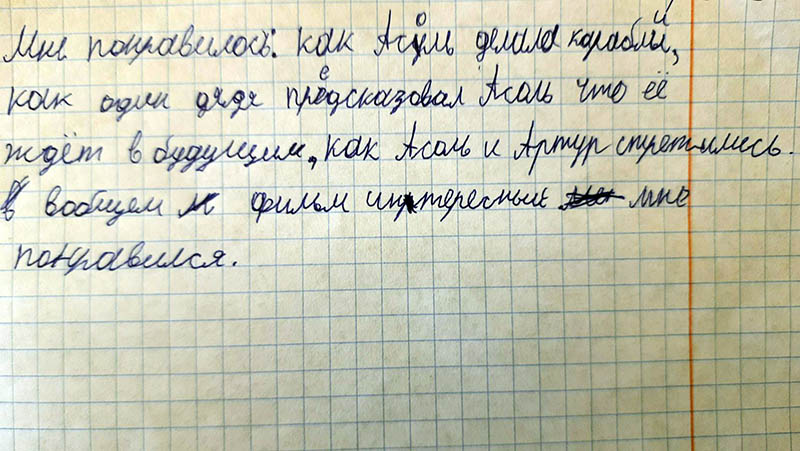 Мне понравилось: как Асоль делала корабли,
как один дядя предсказовал Асоль что её
ждёт в будующим, как Асоль и Артур стретились.
В вообщем фильм интересный мне
понравился.